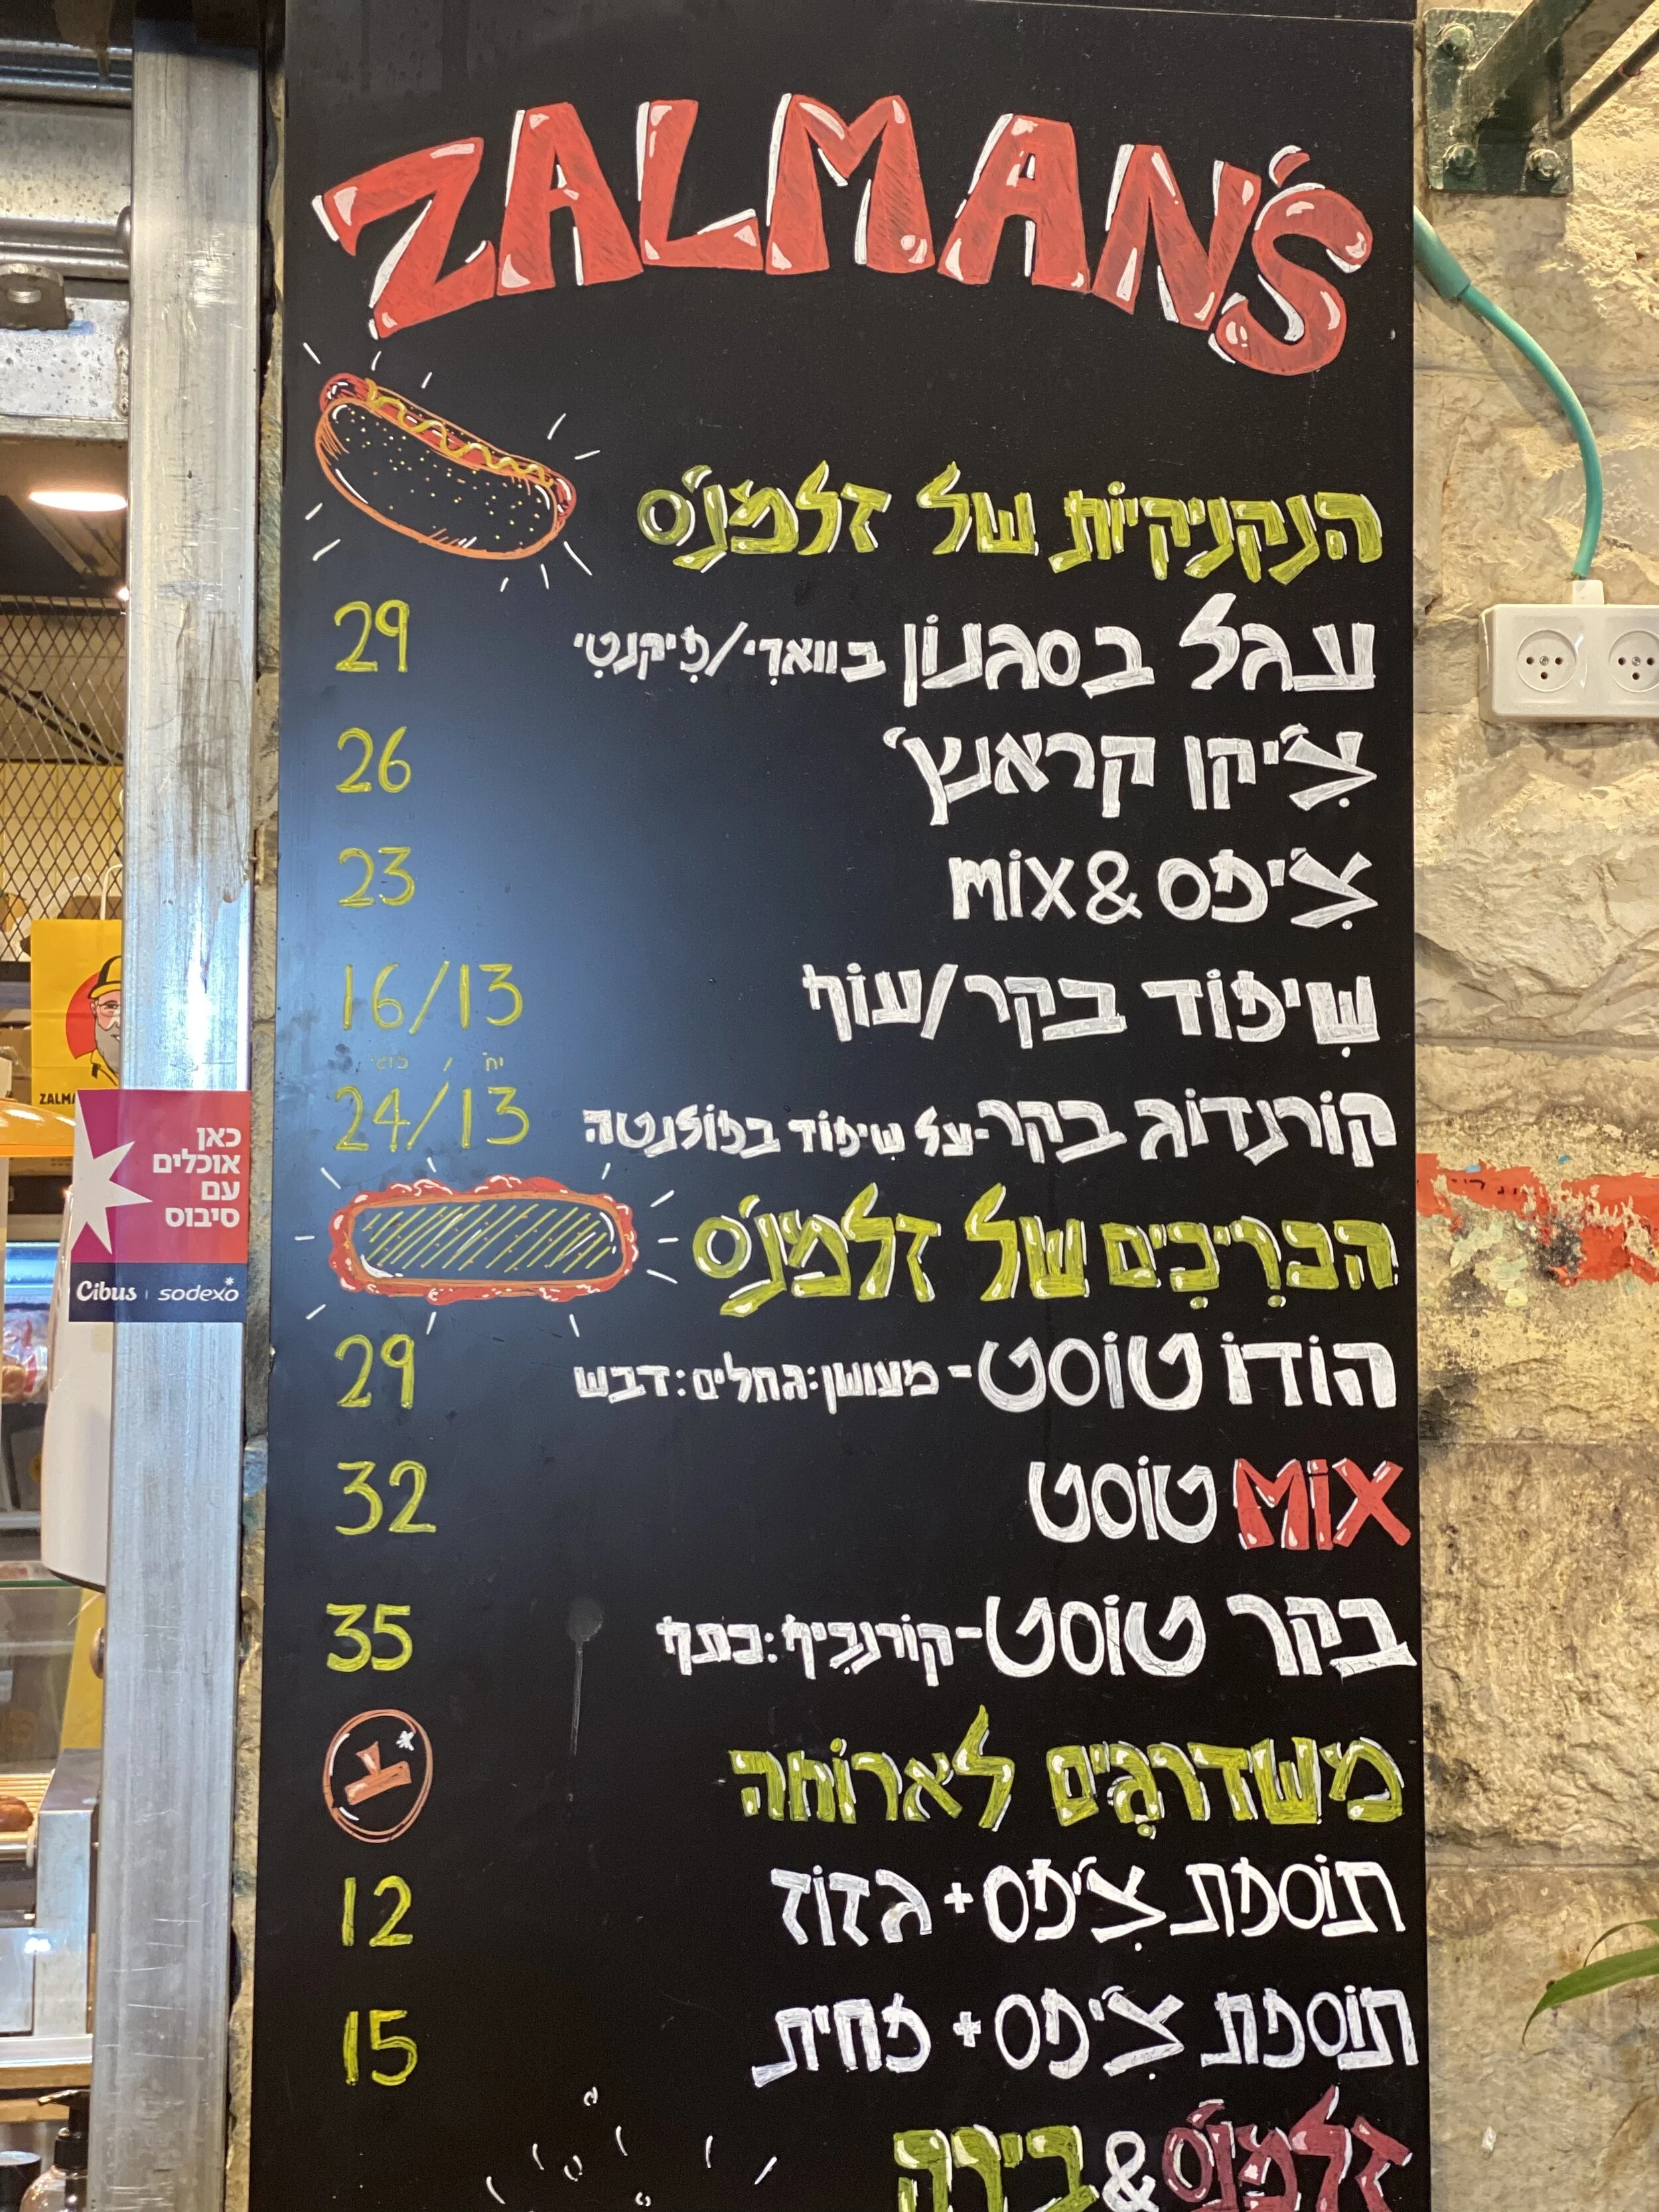 ZALMAN'S
הנקניקיות של זלמנ'ס
עגל בסגנון בווארי/פיקנטי 29
צ'יקן קראנץ' 26
צ'יפס & mix 23
שיפוד בקר/עוף 16/13
יח'
קורנדוג בקר-על שיפוד בפולנטה 24/13
הכריכים של זלמנ'ס
הודו טוסט - מעושן:גחלים:דבש 29
MiX טוסט 32
בקר טוסט-קורנביף:כתף 35
משדרגים לארוחה
תוספת צ'יפס + גזוז 12
תוספת צ'יפס + פחית 15
זלמנ'ס & בירה
כאן
אוכלים
עם
סיבוס
Cibus | sodexo
ZALMA